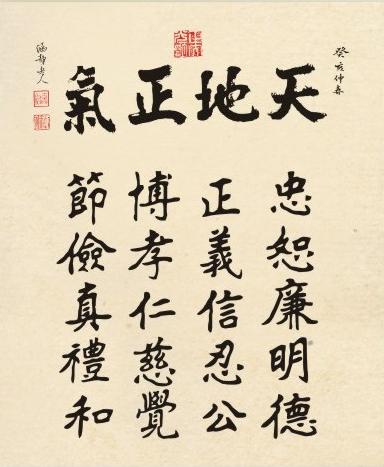 癸亥仲春
天地正氣
忠恕廉明德
正義信忍公
博孝仁慈覺
節儉真禮和
涵靜老人